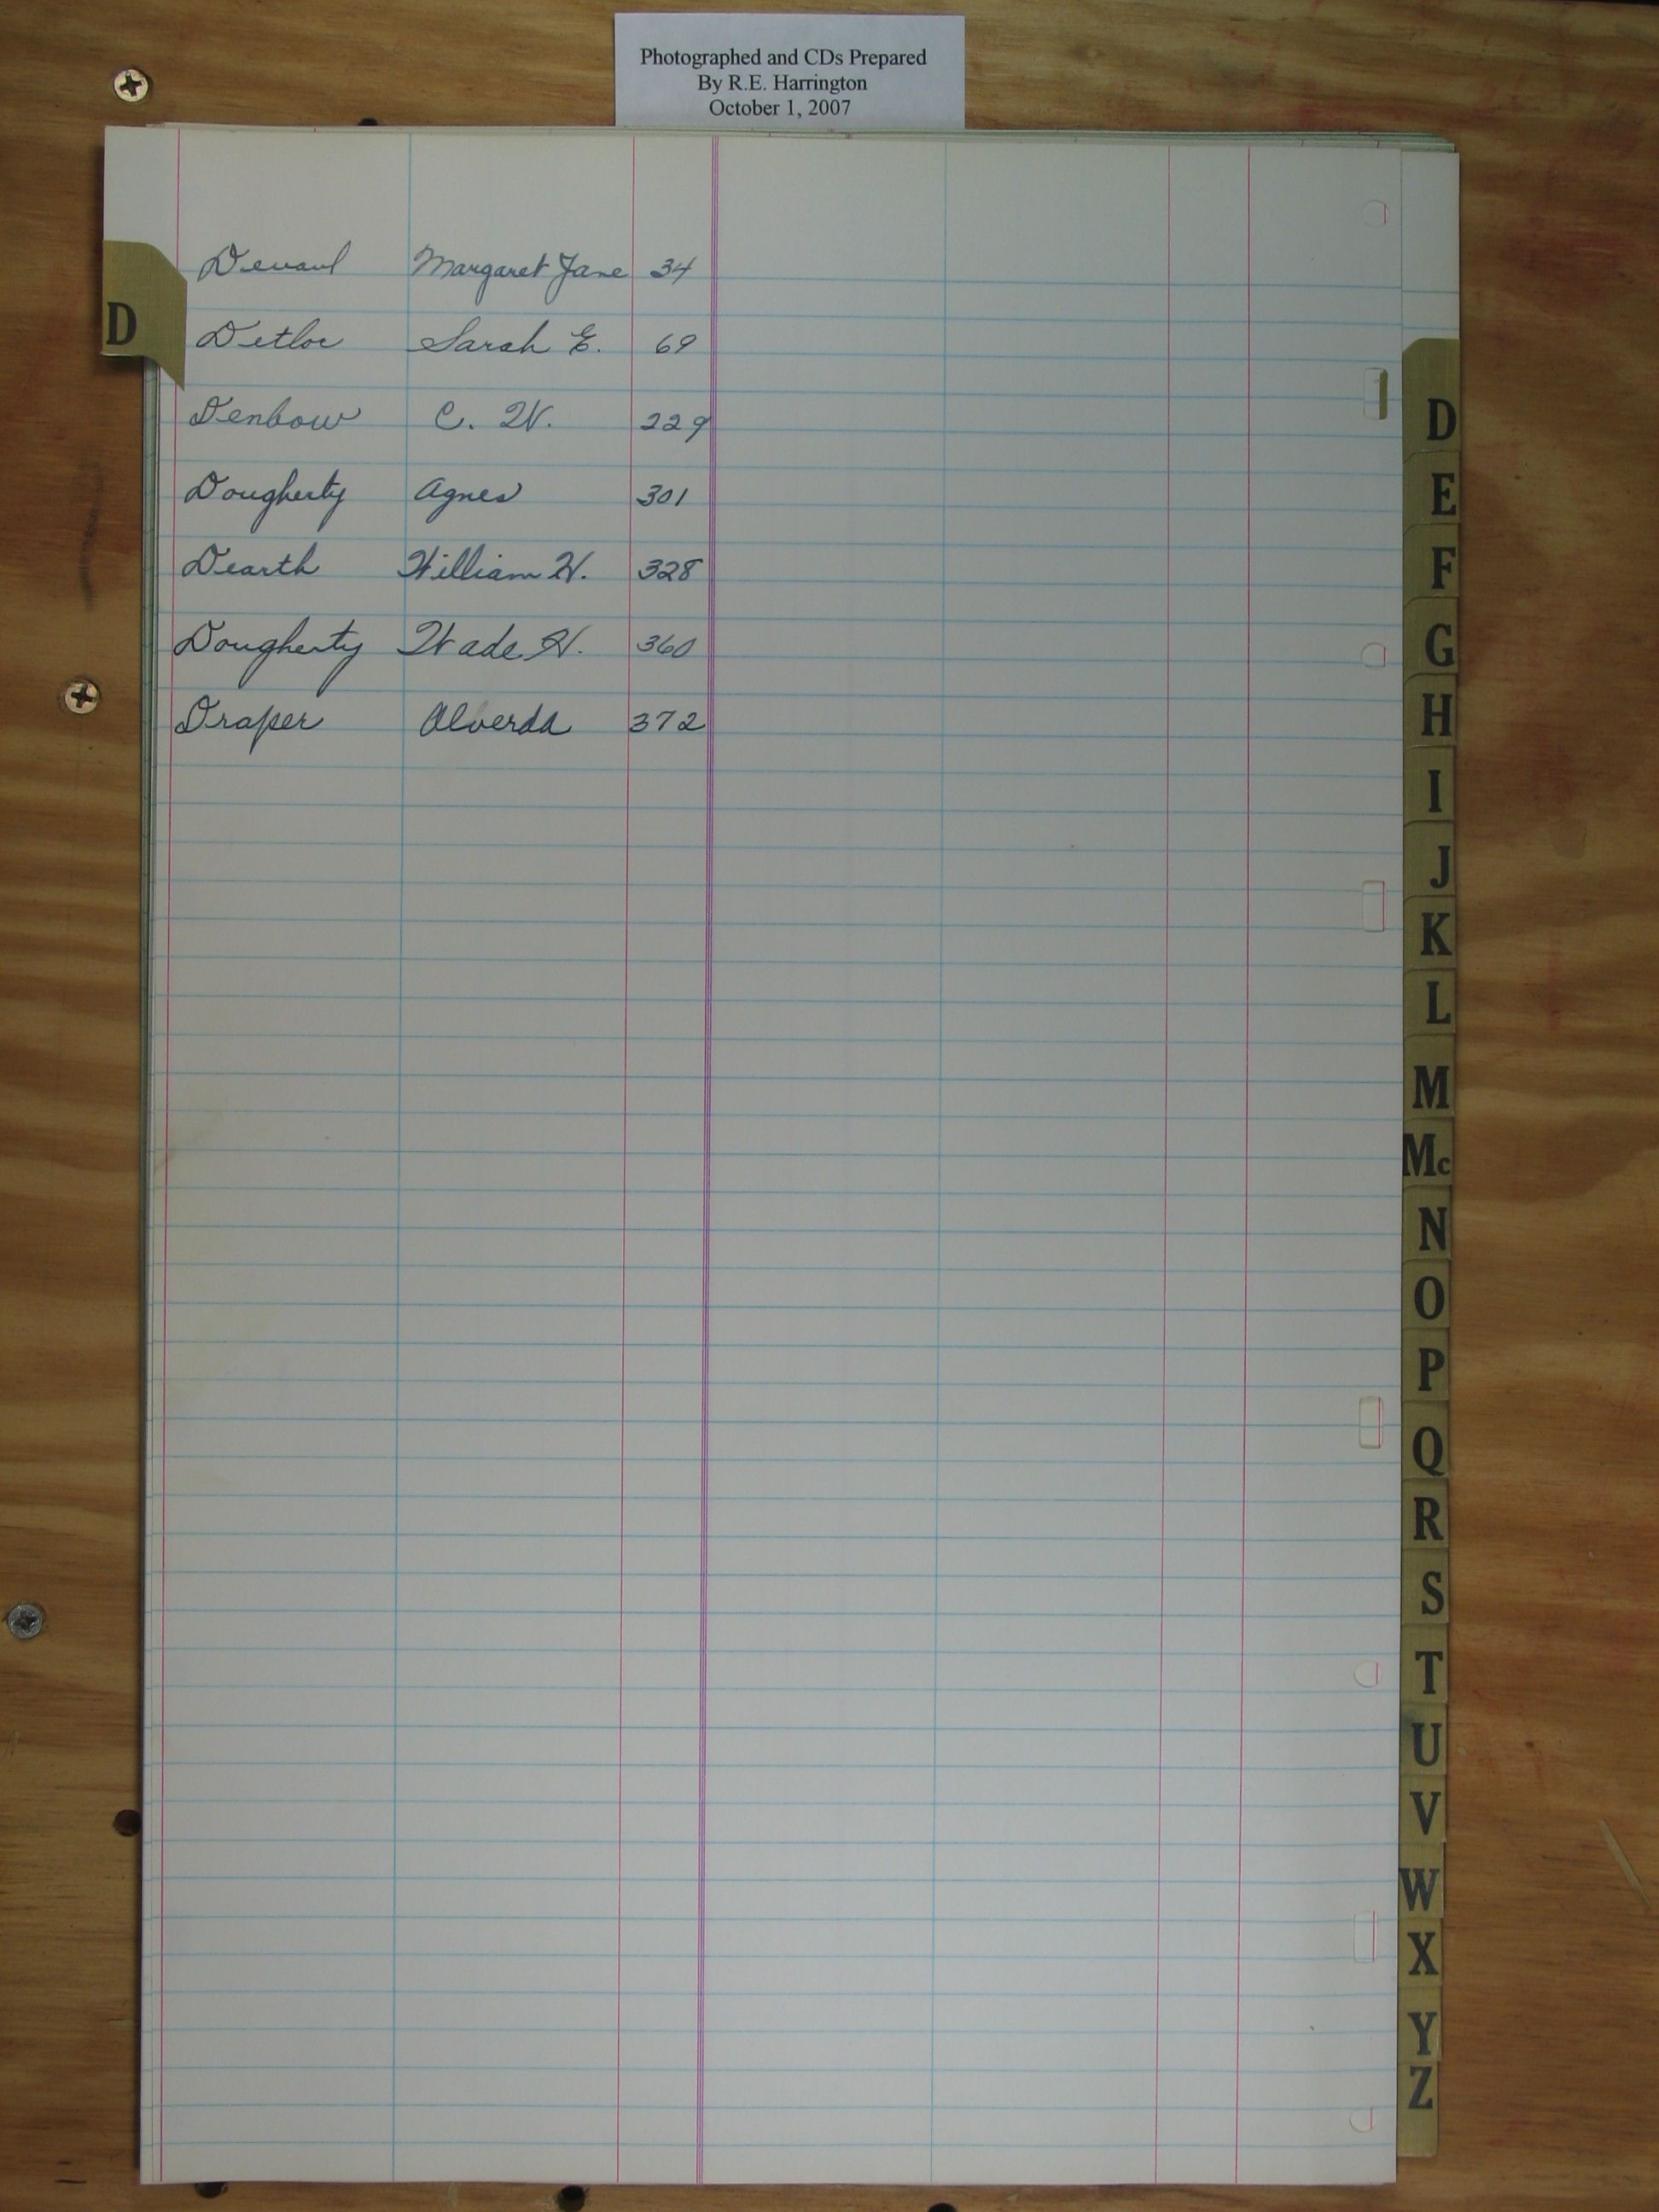 Photographed and CDs Prepared
By R.E. Harrington
October 1, 2007
Devaul Margaret Jane 34
D
Detlor Sarah E. 69
Denbow C. W. 229
Dougherty Agnes 301
Dearth William H. 328
Dougherty Wade H. 360
Draper Alverda 372
D
E
F
G
H
I
J
K
L
M
Mc
N
O
P
Q
R
S
T
U
V
W
X
Y
Z